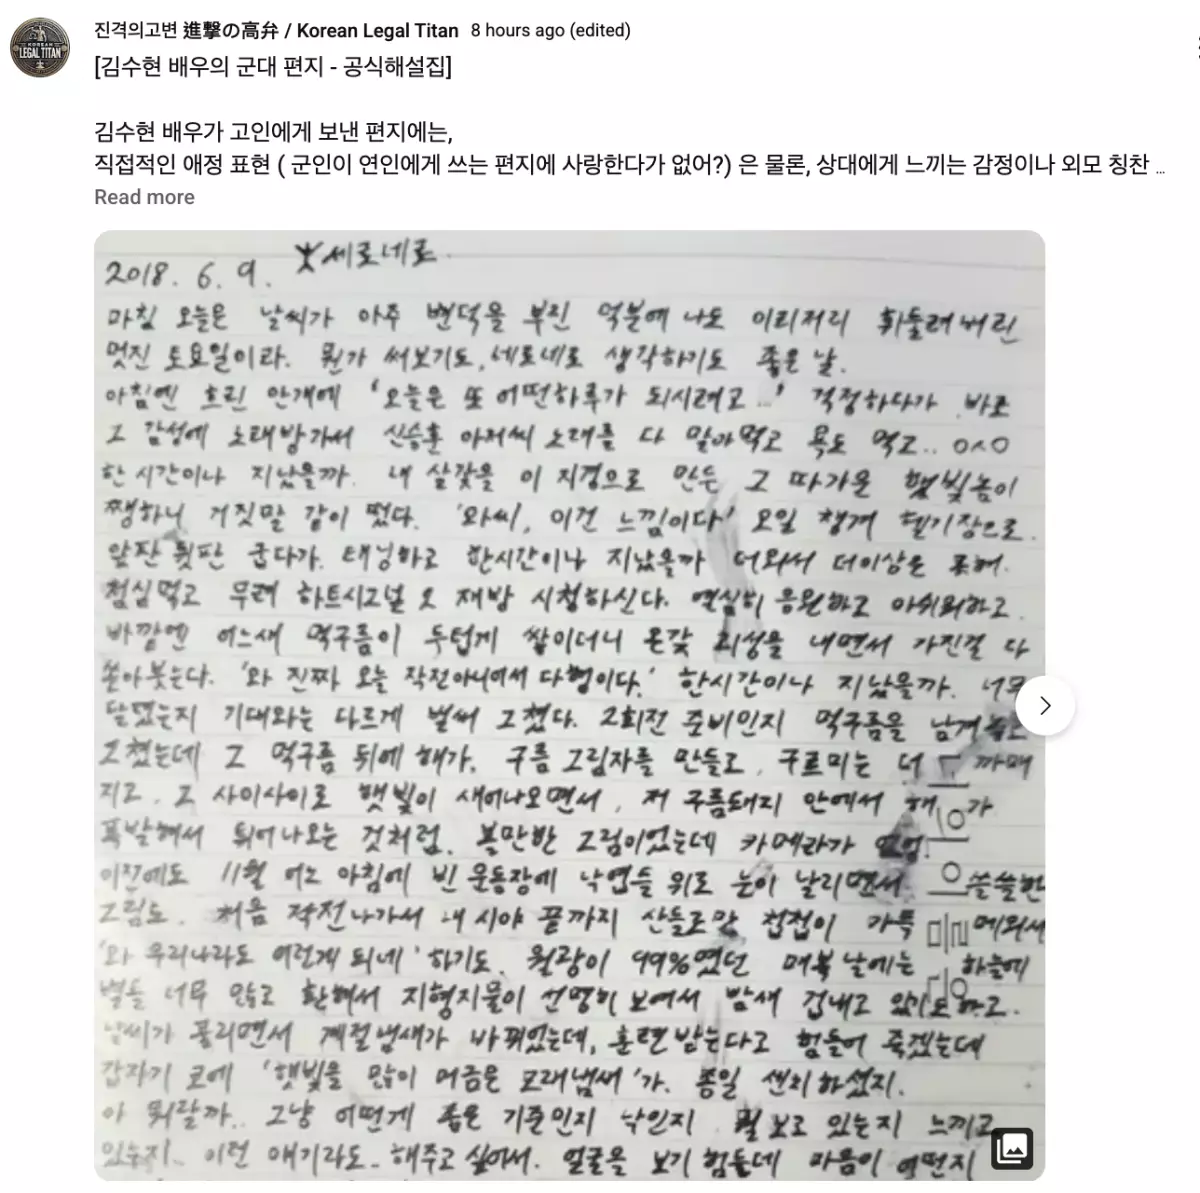 진격의고변 進撃の高弁 / Korean Legal Titan 8 hours ago (edited)
[김수현 배우의 군대 편지 - 공식해설집]
김수현 배우가 고인에게 보낸 편지에는,
직접적인 애정 표현 ( 군인이 연인에게 쓰는 편지에 사랑한다가 없어?) 은 물론, 상대에게 느끼는 감정이나 외모 칭찬 ...
Read more
KOREAN LEGAL TITAN
2018. 6. 9. 세로네로.
마침 오늘은 날씨가 아주 변덕을 부린 덕분에 나도 이리저리 휘둘려버린
멋진 토요일이라. 뭔가 써보기도, 네로네로 생각하기도 좋은 날.
아침엔 흐린 안개에 '오늘은 또 어떤하루가 되시려고...' 걱정하다가 바로
그 감성에 노래방가서 신승훈 아저씨 노래를 다 말아먹고 욕도 먹고.. ㅇㅅㅇ
한 시간이나 지났을까. 내 살갗을 이 지경으로 만든 그 따가운 햇빛놈이
쨍하니 거짓말 같이 떴다. '와씨, 이건 느낌이다' 오일 챙겨 헬기장으로.
앞판 뒷판 굽다가. 태닝하고 한시간이나 지났을까 더와서 더이상은 못해.
점심먹고 무려 하트시그널 2 재방 시청하신다. 열심히 응원하고 아쉬워하고.
바깥엔 어느새 먹구름이 두텁게 쌓이더니 온갖 괴성을 내면서 가진걸 다
쏟아붓는다. '와 진짜 오늘 작전아니어서 다행이다.' 한시간이나 지났을까. 너무
달랬는지 기대와는 다르게 벌써 그쳤다. 2회전 준비인지 먹구름을 남겨놓고
그쳤는데 그 먹구름 뒤에 해가. 구름 그림자를 만들고, 구르미는 더 까매
지고. 그 사이사이로 햇빛이 새어나오면서, 저 구름돼지 안에서 해가
폭발해서 튀어나오는 것처럼. 볼만한 그림이었는데 카메라가 없엉.
이전에도 11월 어느 아침에 빈 운동장에 낙엽들 위로 눈이 날리면서 쓸쓸한
그림도. 처음 작전나가서 내 시야 끝까지 산들로만 첩첩이 가득 메워서
'와 우리나라도 이렇게 되네' 하기도. 월광이 99%였던 매복날에는 하늘에
별들 너무 많고 환해서 지형지물이 선명히 보여서 밤새 겁내고 있기도 하고.
날씨가 풀리면서 계절냄새가 바뀌었는데, 훈련받는다고 힘들어 죽겠는데
갑자기 코에 '햇빛을 많이 머금은 모래냄새'가. 종일 센치하셨지.
아 뭐랄까.. 그냥 어떤게 좋은 기준인지 낙인지 뭘 보고 있는지 느끼고
있는지.. 이런 얘기라도.. 해주고 싶어서. 얼굴을 보기 힘들데 마음이 어떤지